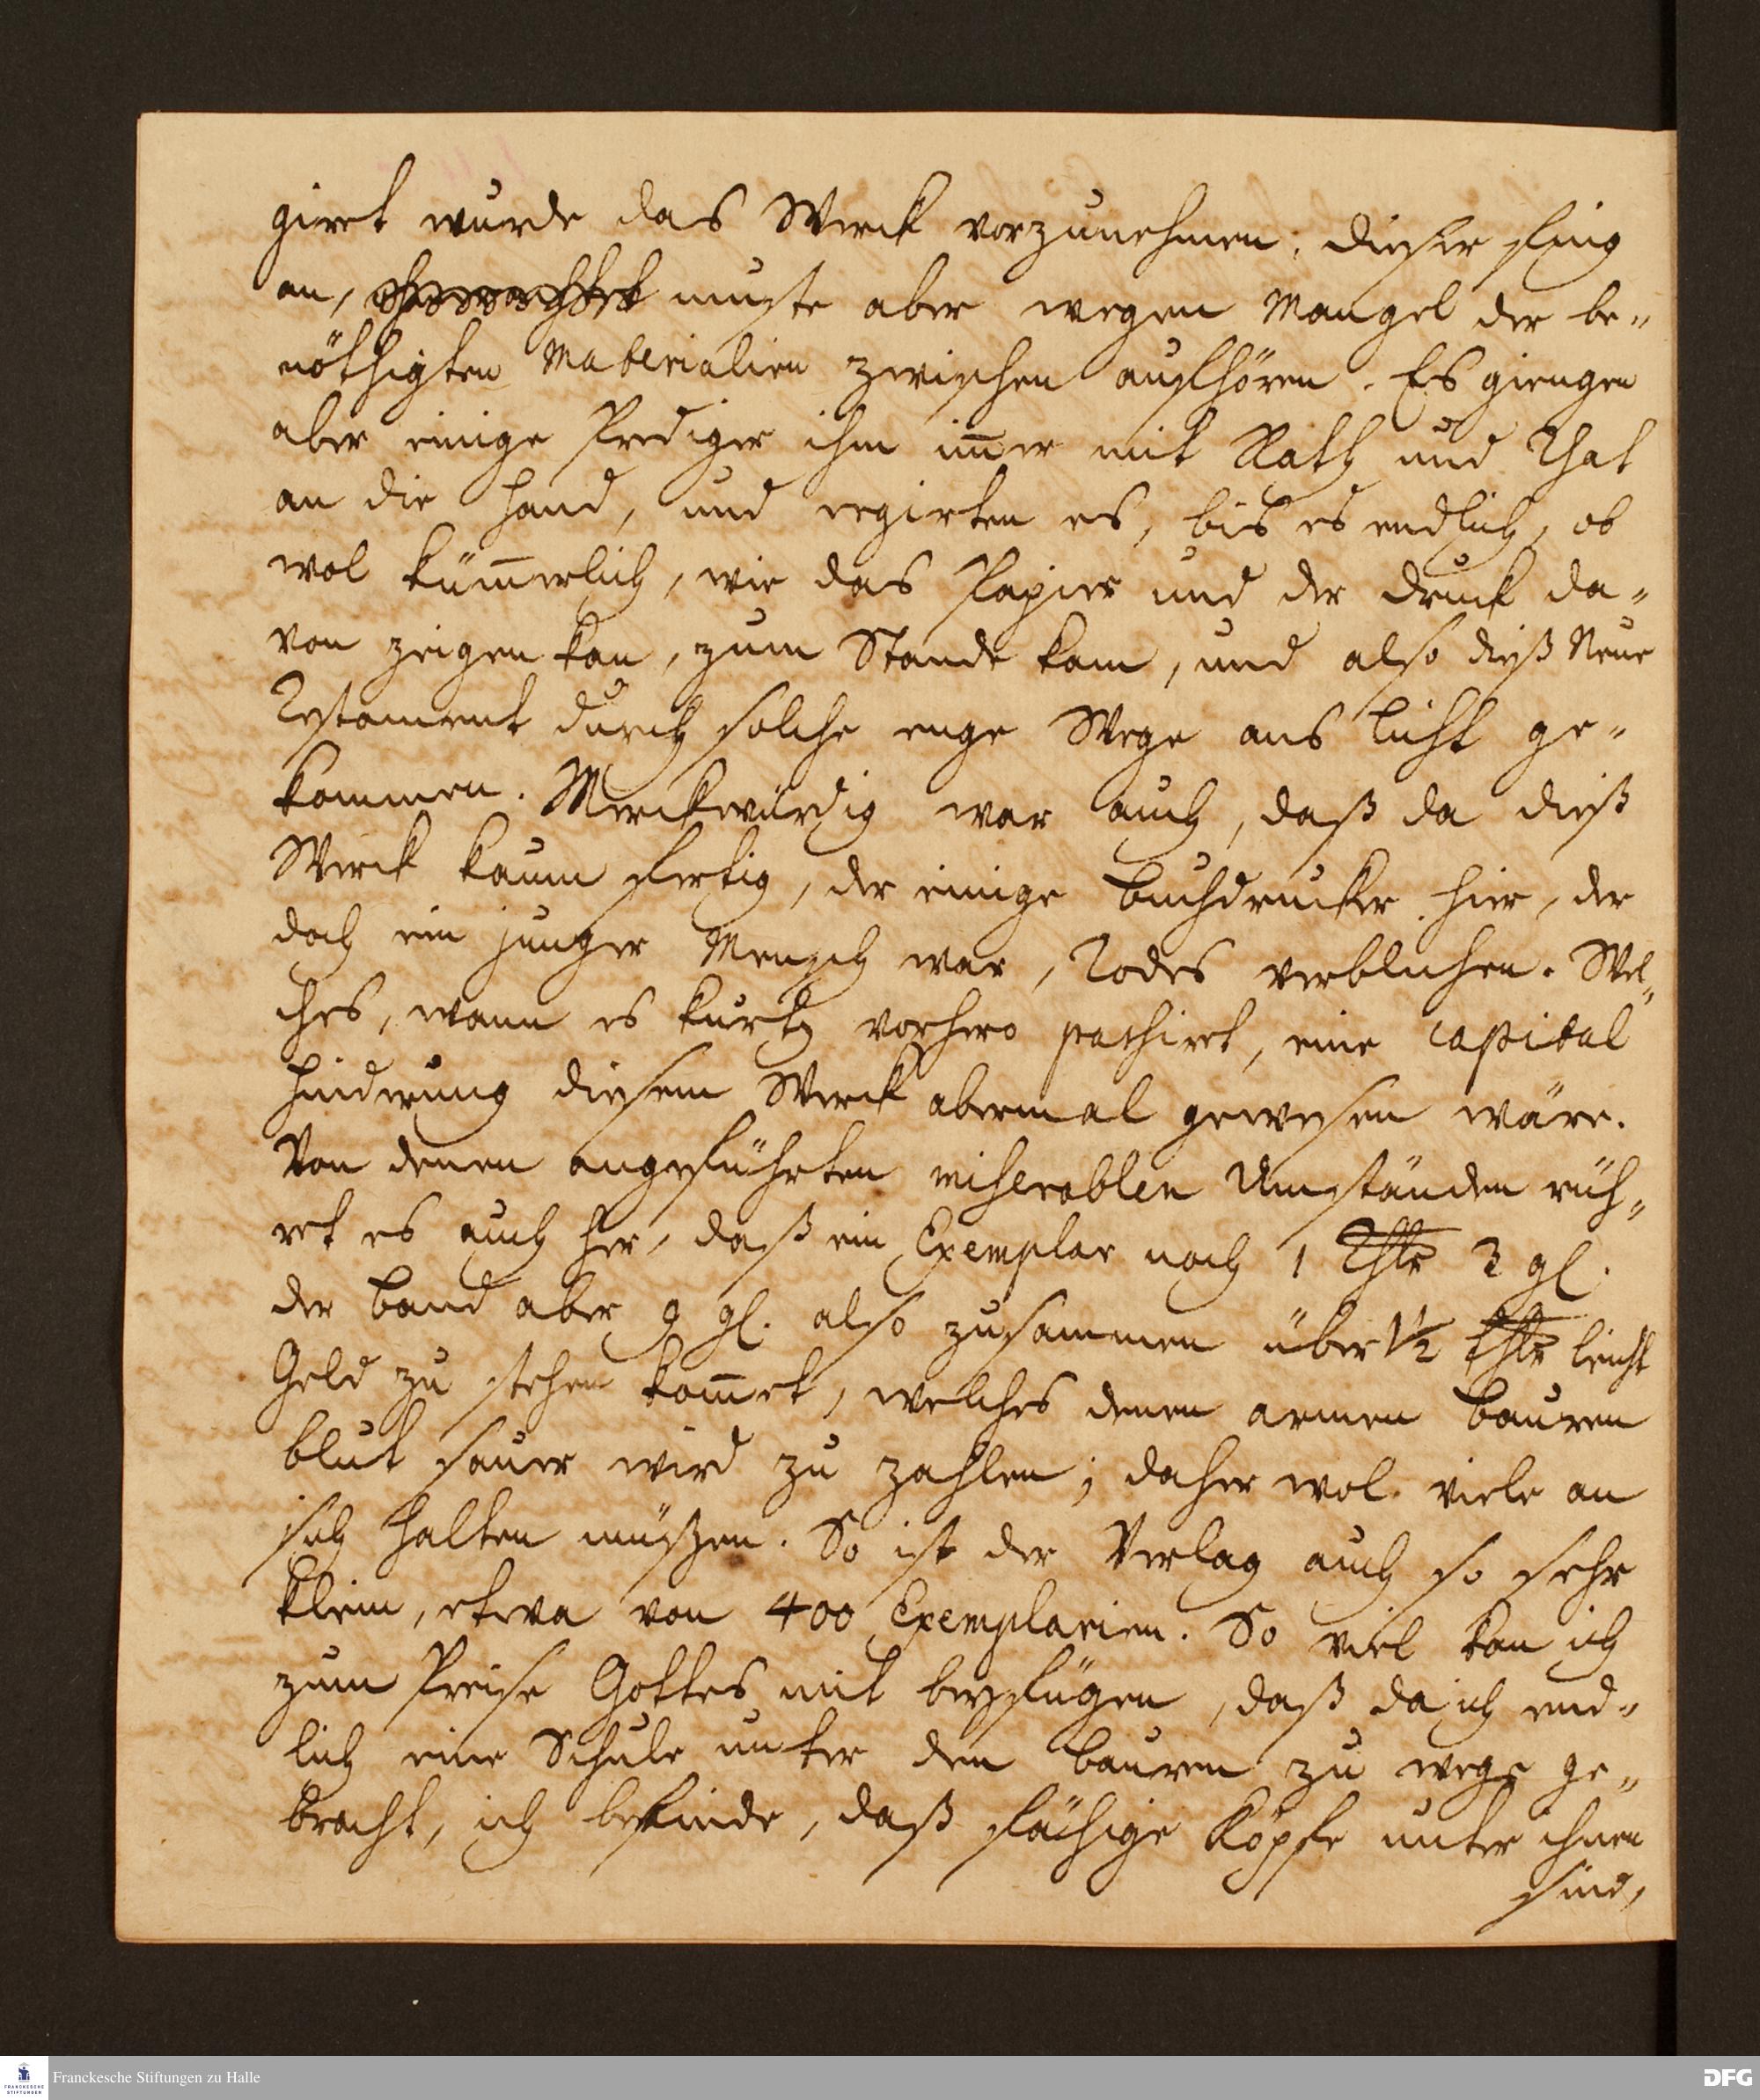 giret wurde das Werck vorzunehmen; dieser fing
an, muste aber wegen Mangel der be-
nöthigten Materialien zwischen aufhören. Es giengen
aber einige Prediger ihm im̄er mit Rath und That
an die Hand, und regirten es, bis es endlich, ob
wol küm̄erlich, wie das Papier und der Druck da-
von zeigen kan, zum Stande kam, und also dieß Neue
Testament durch solche enge Wege ans Licht ge-
kommen. Merckwürdig war auch, daß da dieß
Werck kaum fertig, der einige Buchdrucker hier, der
doch ein junger Mensch war, Todes verblichen. Wel-
ches, wann es kurtz vorhero pashiret, eine capital
Hinderung diesem Werck abermal gewesen wäre.
Von denen angeführten miserablen Umständen rüh-
ret es auch her, daß ein Exemplar noch 1 Thlr 3 gl.
der Band aber 9 gl. also zusammen über 1½ Thlr leicht
Geld zu stehen kom̄et, welches denen armen Bauren
blut sauer wird zu zahlen; daher wol viele an
sich halten müßen. So ist der Verlag auch so sehr
klein, etwa von 400 Exemplarien. So viel kan ich
zum Preise Gottes mit beyfügen, daß da ich end-
lich eine Schule unter den Bauren zu wege ge-
bracht, ich befinde, daß fähige Köpfe unter ihnen
sind,
Franckesche Stiftungen zu Halle
FRANCKESCHE STIFTUNGEN
DFG